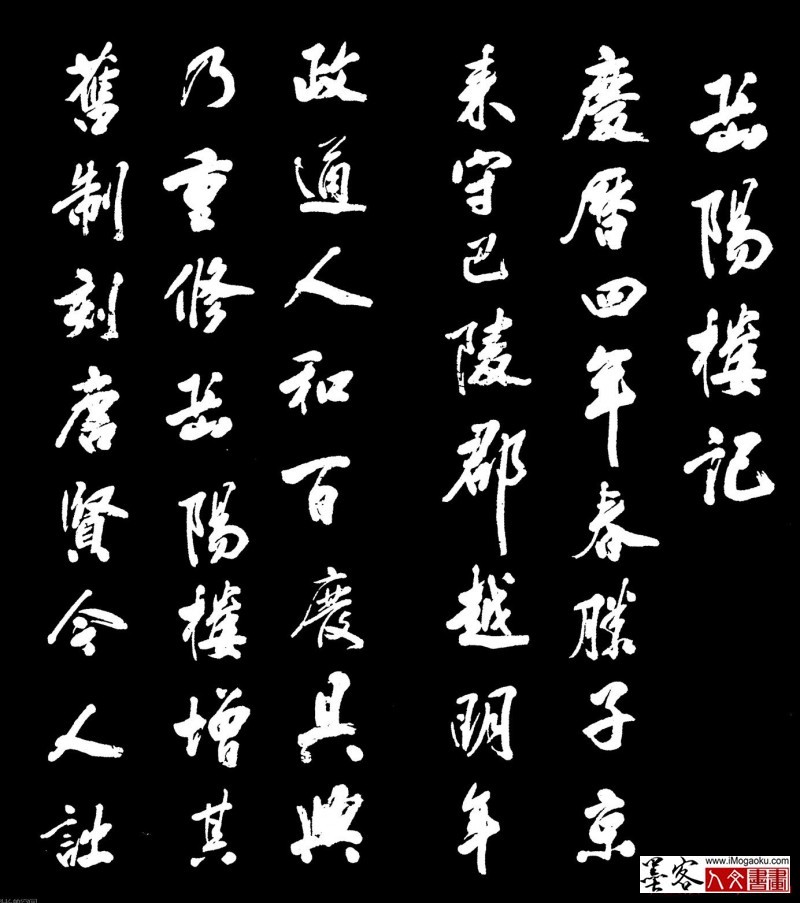 岳陽樓記
慶曆四年春滕子京
来守巴陵郡越明年
政通人和百廢具興
乃重修岳陽樓增其
舊制刻唐賢今人詩
墨客
www.iMogaoku.com
人文書畫